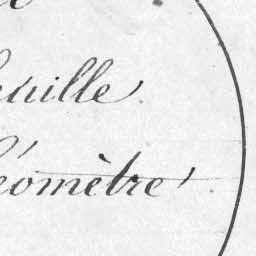 euille
éomètre